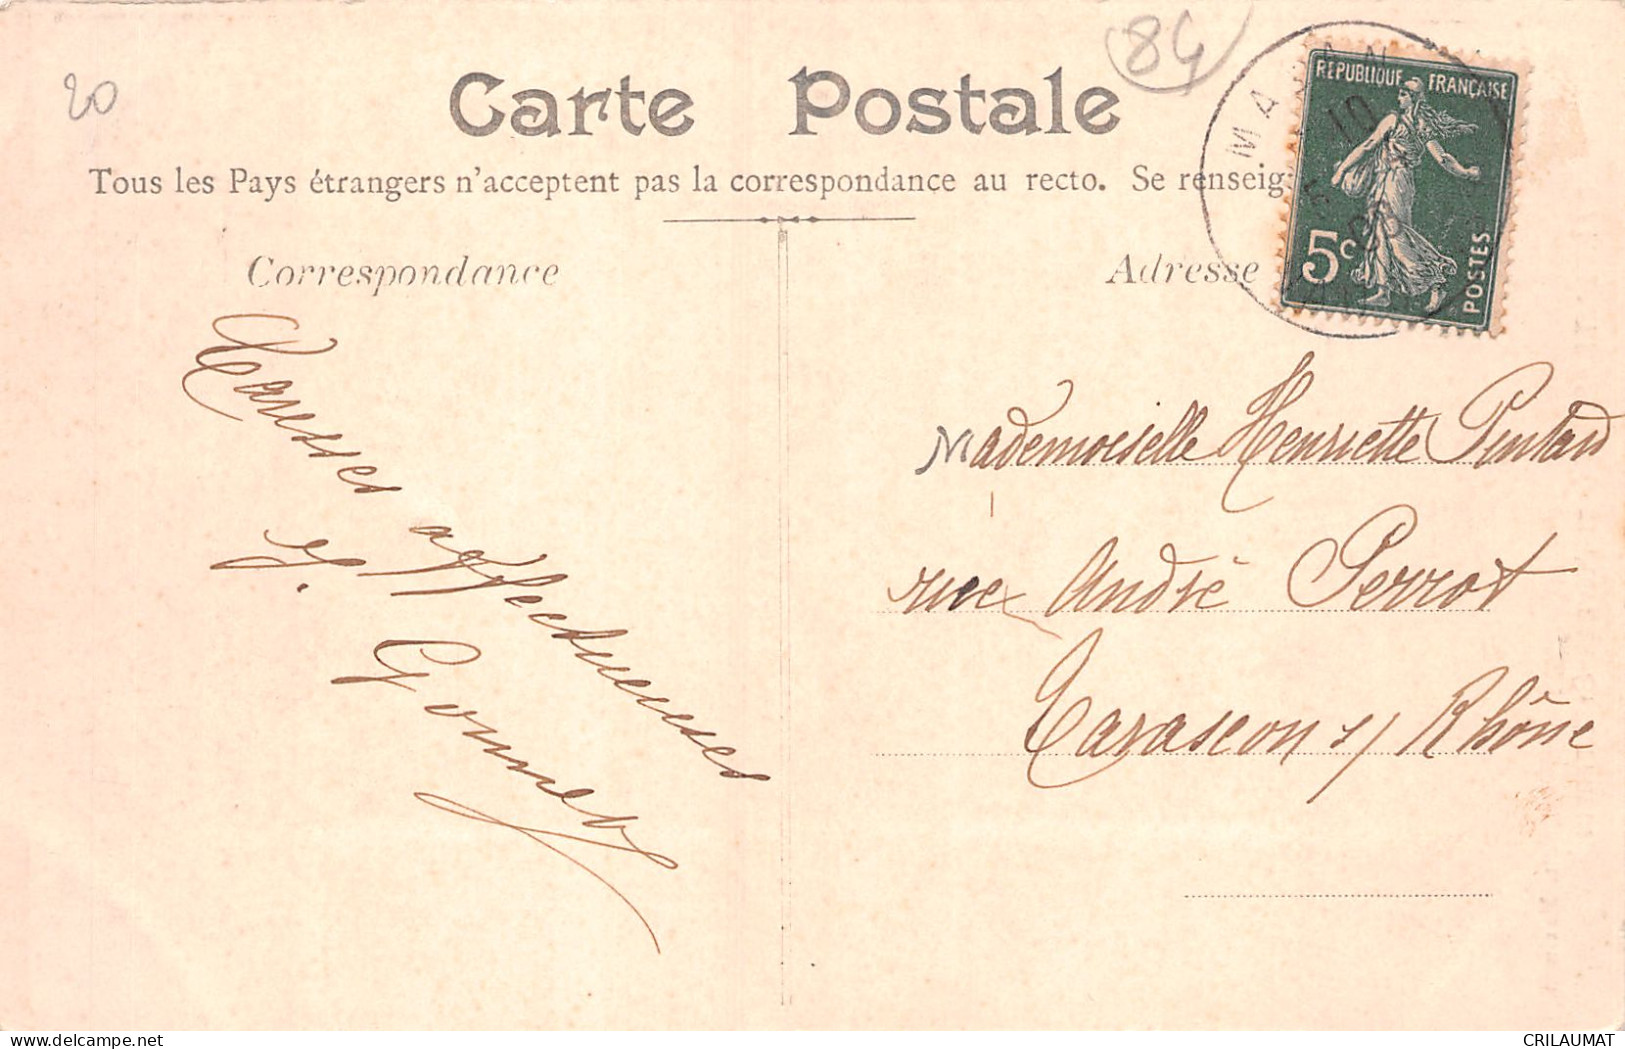 20
84
Carte Postale
Tous les Pays étrangers n'acceptent pas la correspondance au recto. Se renseig
RÉPUBLIQUE FRANÇAISE
5c
POSTES
Correspondance
Adresse
Caresses affectueuses
Mademoiselle Henriette Pintard
rue André Perrot
Tarascon s/ Rhône
delcampe.net
CRILAUMAT